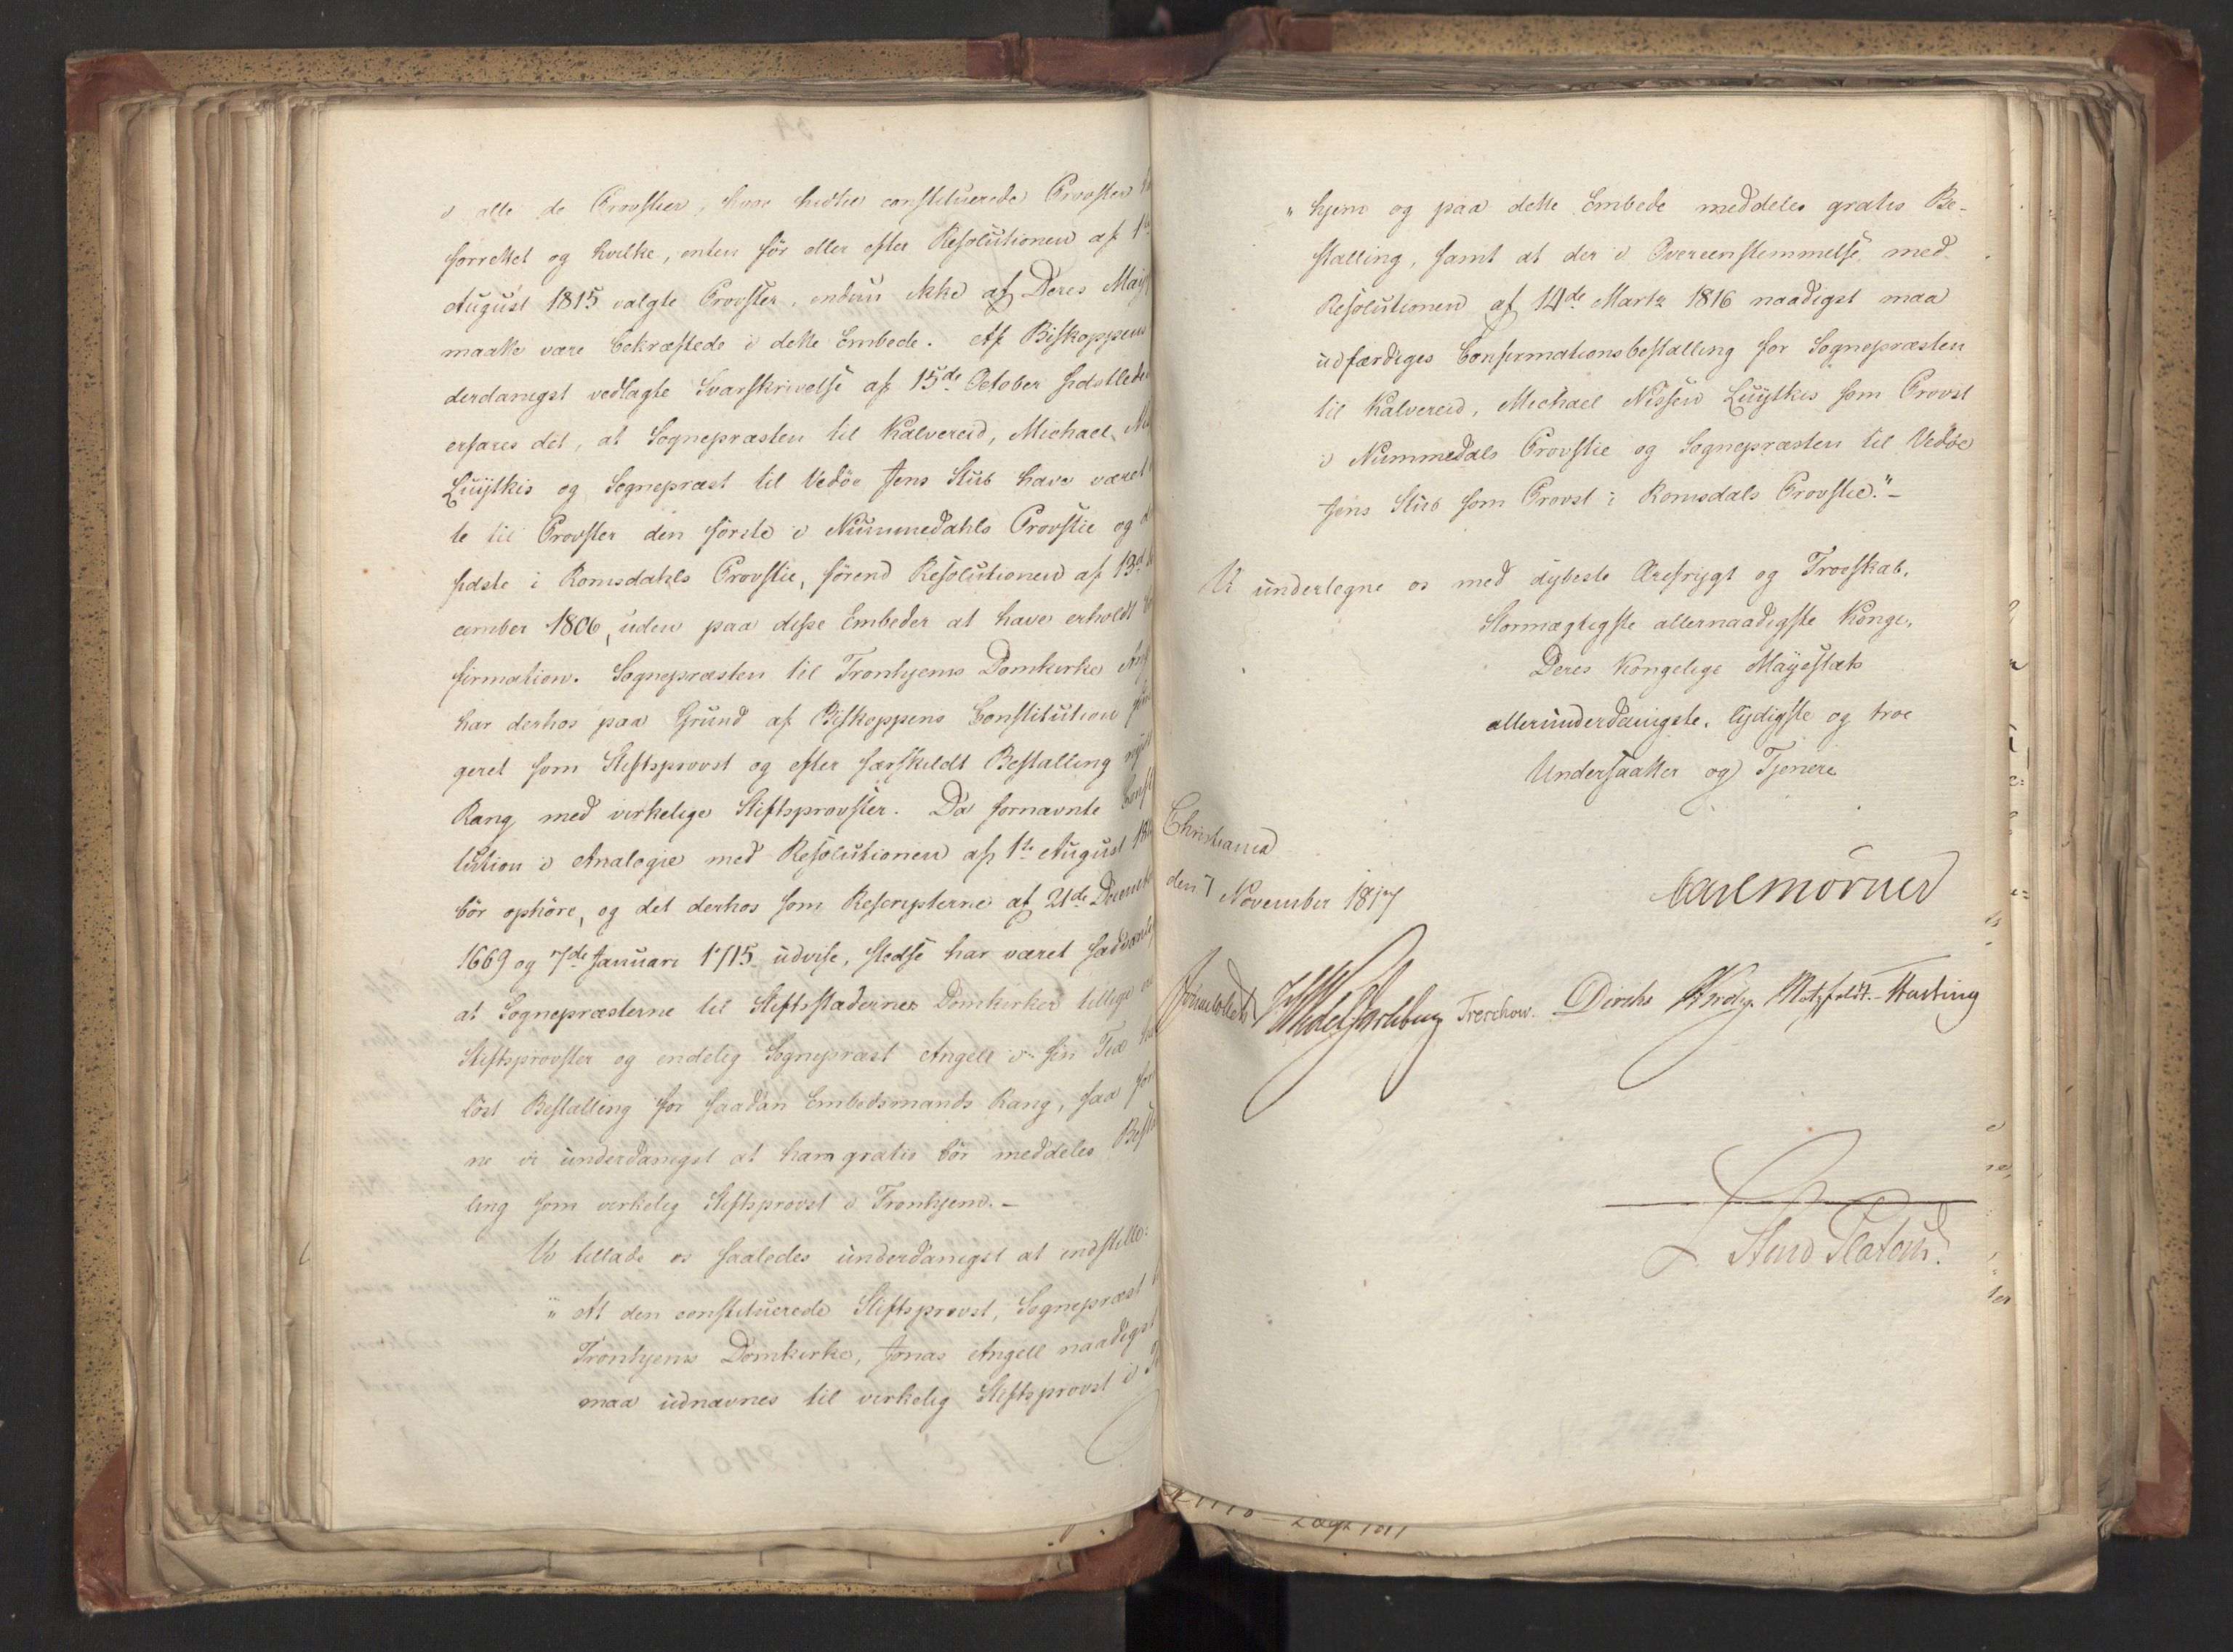 i alle de Provstier, hvor hidtil constituerede Provster
forrettet og hvilke, enten för eller efter Resolutionen af 1ste
August 1815 valgte Provster, endnu ikke af Deres Maje
maatte være bekræftede i dette Embede. Af Biskoppens
derdanigst vedlagte Svarskrivelse af 15de October sidstleden
erfares det, at Sognepræsten til Kalvereid, Michael
Luÿtkis og Sognepræst til Vedöe Jens Stub have været
te til Provster den förste i Nummedahls Provstie og
sidste i Romsdahls Provstie, förend Resolutionen af 13de
cember 1806, uden paa disse Embeder at have erholdt
firmation. Sognepræsten til Tronhjems Domkirke
har derhos paa Grund af Biskoppens Constitution
geret som Stiftsprovst og efter særskildt Bestalling
Rang med virkelige Stiftsprovster. Da fornævnte Const
tution i Analogie med Resolutionen af 1ste August
bör ophöre, og det derhos som Rescripterne af 21de Decemb
1669 og 7de Januari 1715 udvise, stedse har været sædvanlig
at Sognepræsterne til Stiftsstædernes Domkirker tillige
Stiftsprovster og endelig Sognepræst Angell i sin Tid
löst Bestalling for saadan Embedsmands Rang, saa
ne vi underdanigst at ham gratis bör meddeles Besta
ling som virkelig Stiftsprovst i Tronhjem.-
Vi tillade os saaledes underdanigst at indstille:
" At den constituerede Stiftsprovst, Sognepræst
Tronhjems Domkirke, Jonas Angell naadigst
maa udnævnes til virkelig Stiftsprovst i
" hjem og paa dette Embede meddeles gratis Be-
stalling, samt at der i Overeensstemmelse med
Resolutionen af 14de Martz 1816 naadigst maa
udfærdiges Confirmationsbestalling for Sognepræsten
til Kalvereid, Michael Nissen Luÿtkis som Provst
i Nummedals Provstie og Sognepræsten til Vedöe
Jens Stub som Provst i Romsdals Provstie."-
Vi undertegne os med dybeste Ærefrygt og Troeskab,
Stormægtigste allernaadigste Konge,
Deres Kongelige Mayestæts
allerunderdanigste, lydigste og troe
Undersaatter og Tjenere
Christiania
den 7 November 1817
Carl Mörner
Sommerhielm HWedelJarlsberg Treschow. Diriks Krog. Motzfeldt. Hasting
Sten Platou.